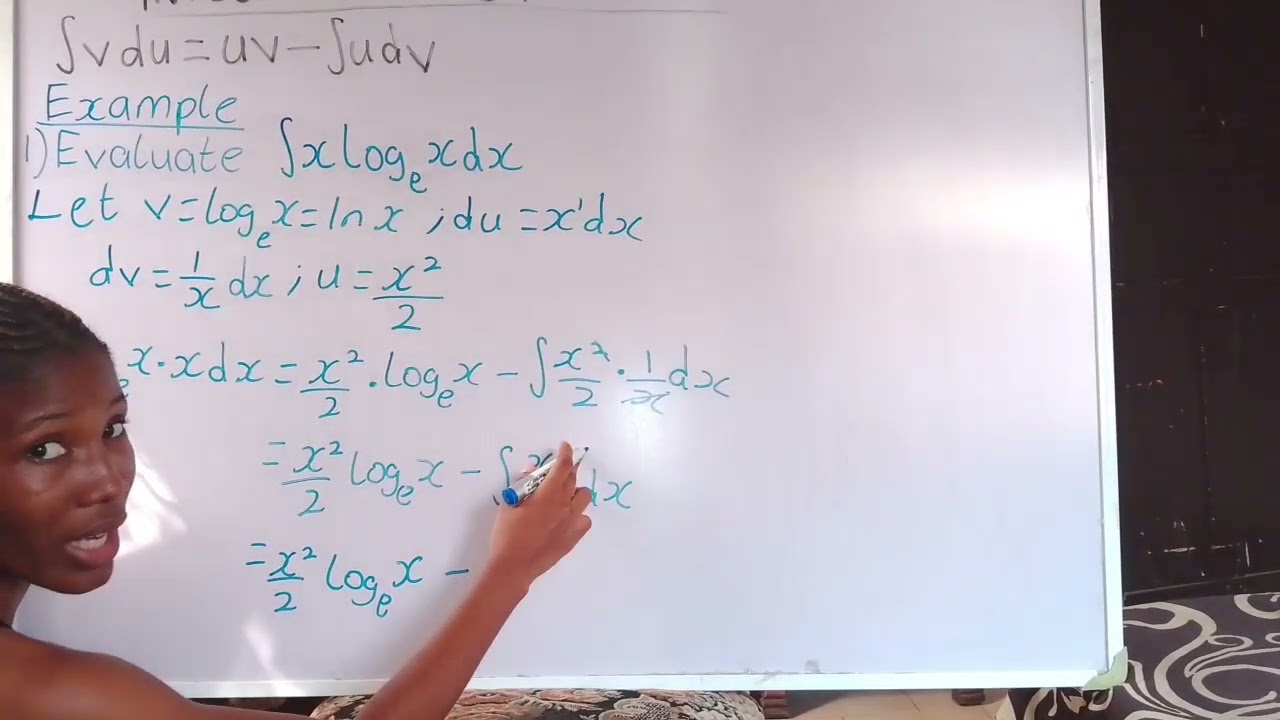 ∫vdu=uv−∫udv
Example
1) Evaluate ∫x logₑ x dx
Let v=logₑx=ln x ; du =x¹dx
dv=1/x dx ; u=x²/2
x·xdx = x²/2 · logₑx − ∫x²/2 · 1/x dx
= x²/2 logₑx − ∫ dx
= x²/2 logₑx −